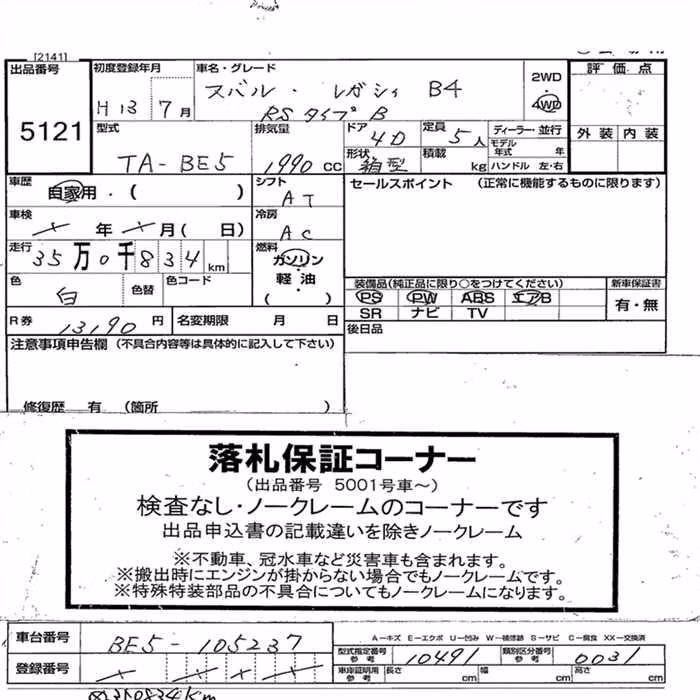 [2141]
出品番号
5121
初度登録年月
H13年 7月
車名・グレード
スバル・レガシィ B4
RS タイプB
2WD
4WD
評価点
外装 内装
型式
TA-BE5
排気量
1990 cc
ドア
4D
形状
箱型
定員
5人
積載
kg
ディーラー・並行
モデル年式 年
ハンドル 左・右
車歴
自家用・( )
シフト
AT
セールスポイント (正常に機能するものに限ります)
車検
年 月( 日)
冷房
AC
走行
35万0千834km
燃料
ガソリン・
軽油
( )
色
白
色替
色コード
装備品(純正品に限り○をつけてください)
PS PW ABS エアB
SR ナビ TV
新車保証書
有・無
R券
13190円
名変期限 月 日
後日品
注意事項申告欄 (不具合内容等は具体的に記入して下さい)
修復歴 有 (箇所 )
落札保証コーナー
(出品番号 5001号車～)
検査なし・ノークレームのコーナーです
出品申込書の記載違いを除きノークレーム
※不動車、冠水車など災害車も含まれます。
※搬出時にエンジンが掛からない場合でもノークレームです。
※特殊特装部品の不具合についてもノークレームになります。
車台番号
BE5-105237
A-キズ E-エクボ U-凹み W-補修跡 S-サビ C-腐食 XX-交換済
型式指定番号
参考
10491
類別区分番号
参考
0031
登録番号
車庫証明用
参考
長さ cm 幅 cm 高さ cm
350834Km